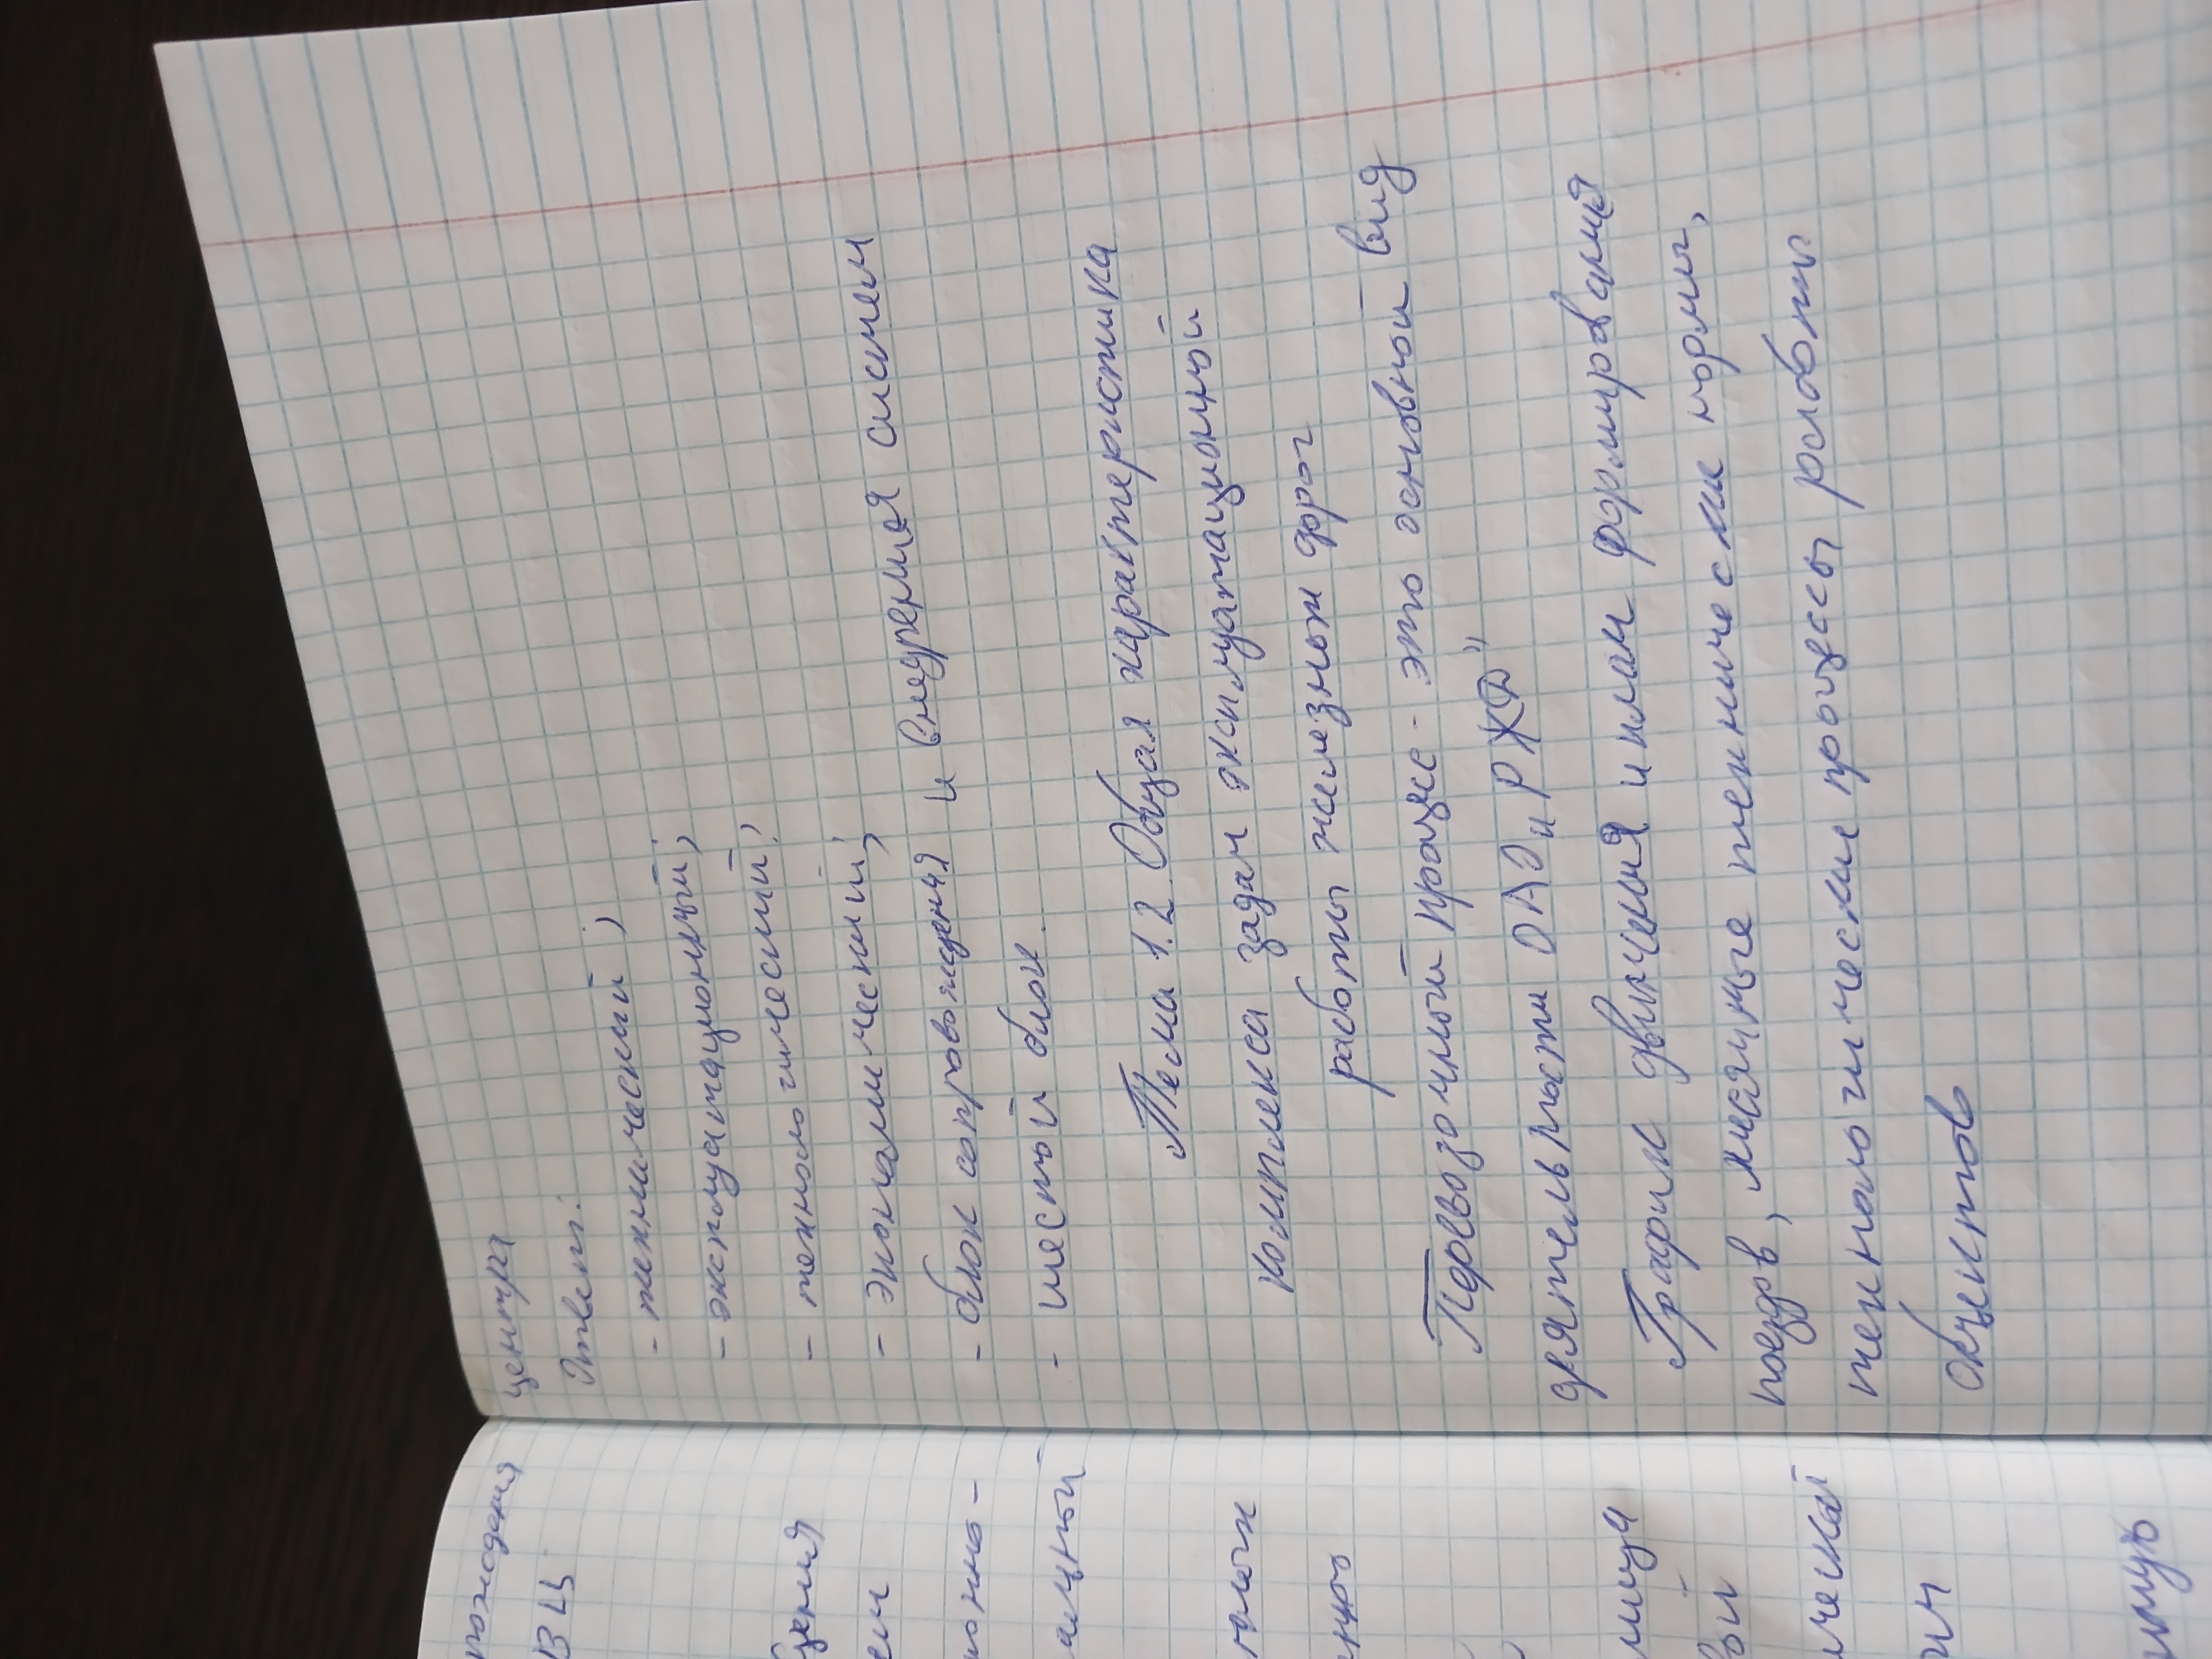 центра
Ответ:
- технический;
- эксплуатационный;
- технологический;
- экономический;
- блок сопровождения и внедрения систем
- шестой блок.
Тема 1.2. Общая характеристика
комплекса задач эксплуатационной
работы железных дорог
Перевозочной процесс - это основной вид
деятельности ОАО "РЖД"
График движения и план формирования
поездов, месячные технические нормы,
технологические процессы работы
объектов
вождения
ВЦ